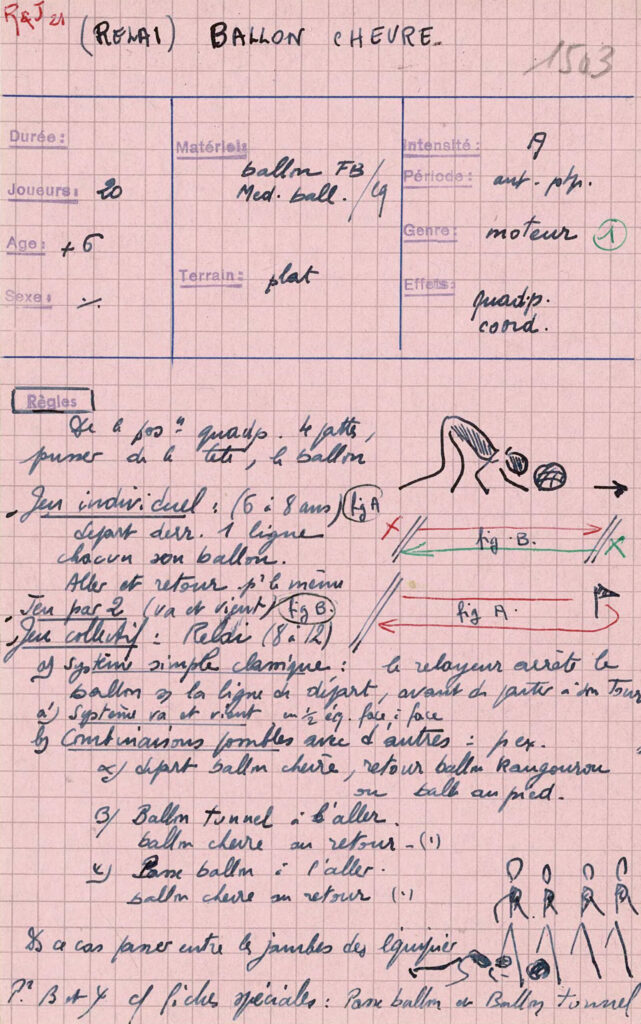 R&J 21
(RELAI) BALLON CHEVRE.
1503
Durée:
Joueurs: 20
Age: + 6
Sexe: ./.
Matériel:
ballon FB/
Med. ball./
Terrain: plat
Intensité: A
Période: ant. ptp.
Genre: moteur 1
Effets: quadrip.
coord.
Règles
De la pos.n quadrip. 4 pattes,
pusser de la tête, le ballon
Jeu individuel: (6 à 8 ans) fig A
départ derr. 1 ligne
chacun son ballon.
Aller et retour p'le même
Jeu par 2 (va et vient) fig B.
Jeu collectif: Relai (8 à 12)
fig. B.
fig A.
a) Système simple classique: le relayeur arrête le
ballon s/ la ligne de départ, avant de partir à son Tour
a') Système va et vient en ½ éq. face à face
b) Combinaisons possibles avec d'autres: p ex.
α) départ ballon chèvre, retour ballon Kangourou
ou balle au pied.
β/ Ballon tunnel à l'aller.
ballon chevre au retour - (1)
γ) Passe ballon à l'aller.
ballon chevre au retour (1)
Ds ce cas passer entre les jambes des équipier
Pr β et γ cf fiches spéciales: Passe ballon et Ballon tunnel